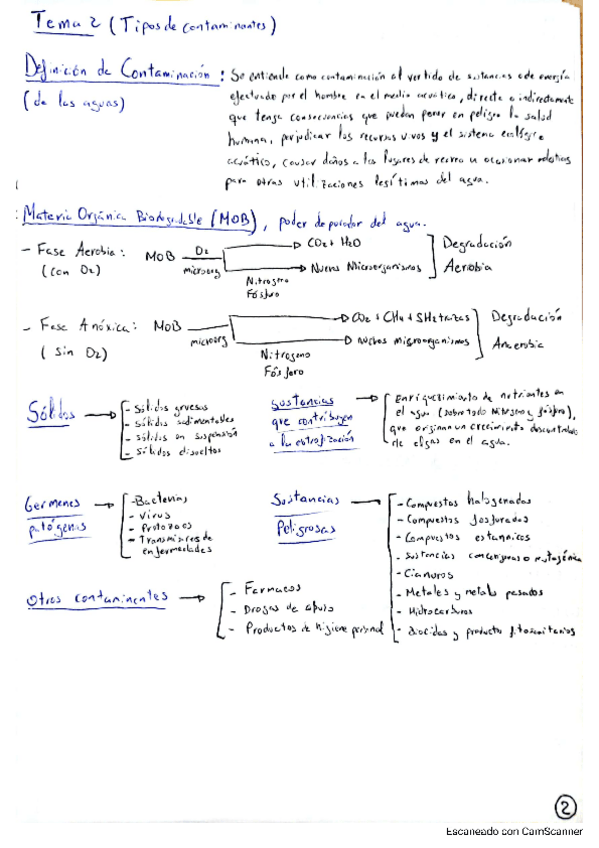 Tema 2 (Tipos de contaminantes)
Definición de Contaminación: Se entiende como contaminación al vertido de sustancias o de energía
(de las aguas) efectuado por el hombre en el medio acuático, directa o indirectamente
que tenga consecuencias que puedan poner en peligro la salud
humana, perjudicar los recursos vivos y el sistema ecológico
acuático, causar daños a los lugares de recreo u ocasionar molestias
para otras utilizaciones legítimas del agua.
: Materia Orgánica Biodegradable (MOB), poder depurador del agua.
- Fase Aerobia: MOB O2 → CO2 + H2O Degradación
(con O2) microorg → Nuevos Microorganismos Aerobia
Nitrógeno
Fósforo
- Fase Anóxica: MOB → CO2 + CH4 + SH2 trazas Degradación
(sin O2) microorg → Nuevos microorganismos Anaerobia
Nitrógeno
Fósforo
Sólidos →
- Sólidos gruesos
- Sólidos sedimentables
- Sólidos en suspensión
- Sólidos disueltos
Sustancias
que contribuyen
a la eutrofización →
Enriquecimiento de nutrientes en
el agua (sobretodo Nitrógeno y fósforo),
que originan un crecimiento descontrolado
de algas en el agua.
Gérmenes
patógenos →
- Bacterias
- Virus
- Protozoos
- Transmisores de
enfermedades
Sustancias
Peligrosas →
- Compuestos halogenados
- Compuestos fosforados
- Compuestos estannicos
- Sustancias cancerígenas o mutagénica
- Cianuros
- Metales y metales pesados
- Hidrocarburos
- Biocidas y producto fitosanitarios
Otros contaminantes →
- Fármacos
- Drogas de abuso
- Productos de higiene personal
2
Escaneado con CamScanner